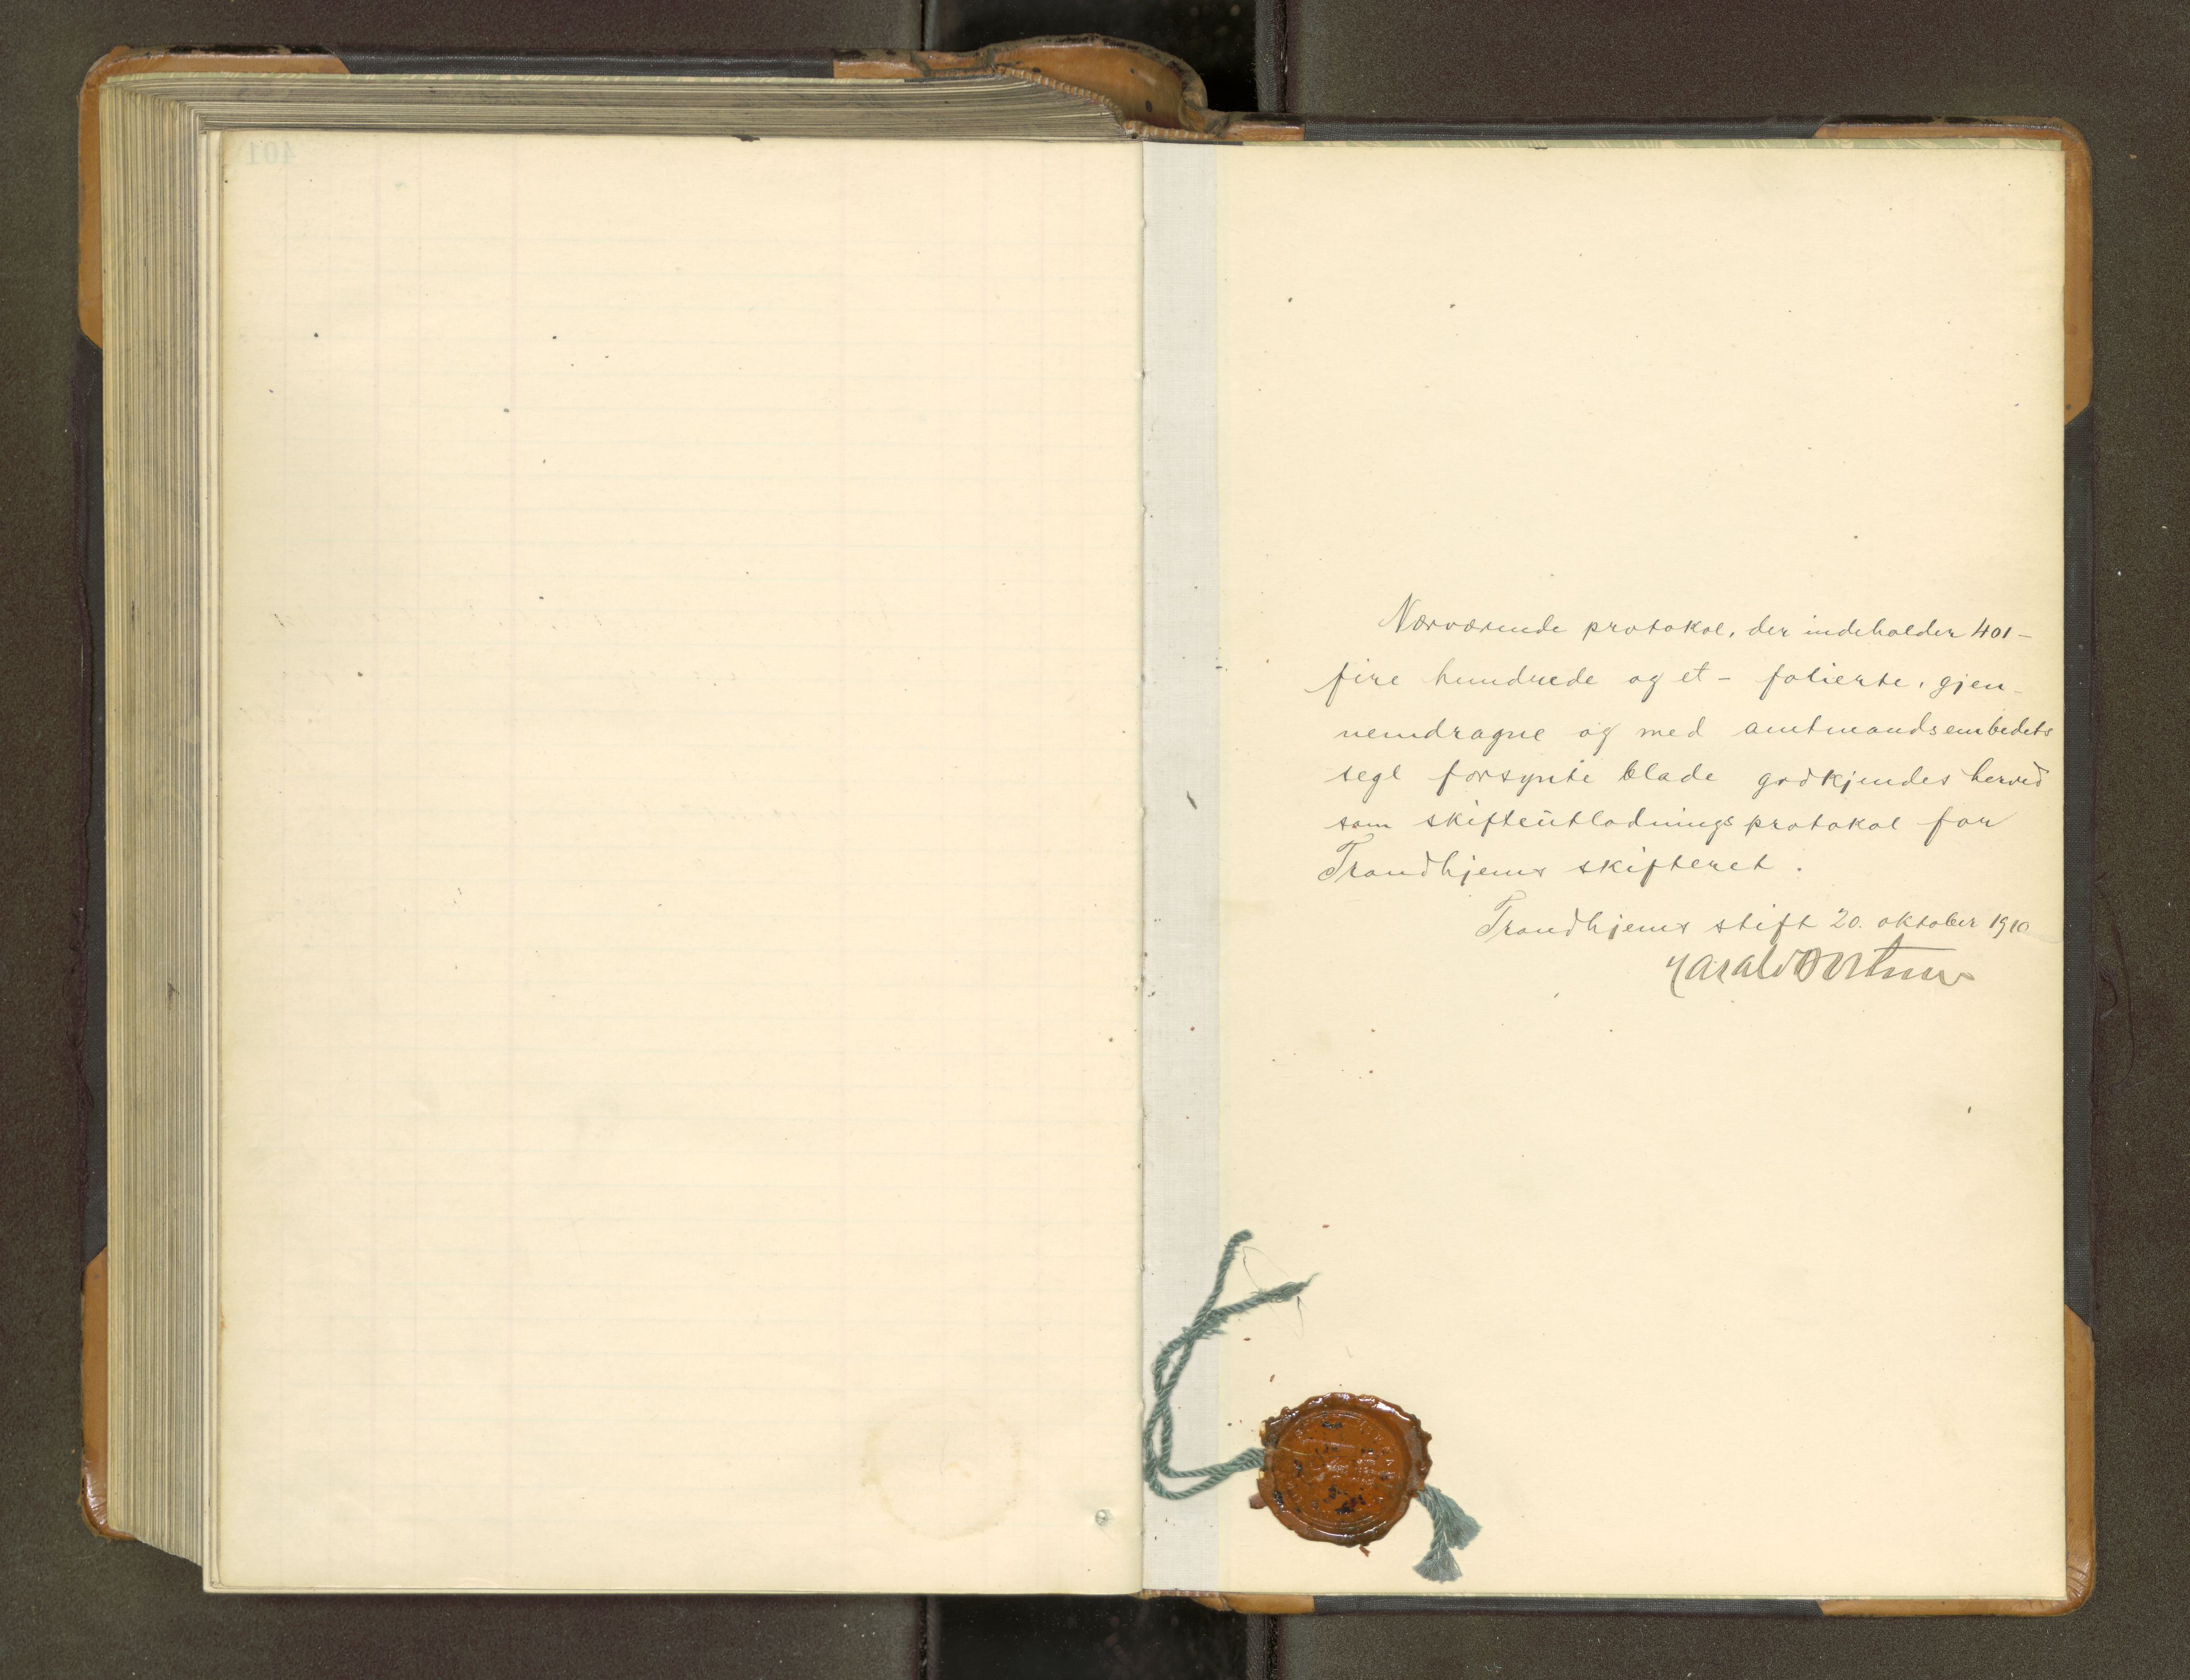 401
Nærværende protokol, der indeholder 401 –
fire hundrede og et – folierte, gjen-
nemdragne og med amtmandsembedets
segl forsynte blade godkjendes herved
som skifteutlodningsprotokol for
Trondhjems skifteret.
Trondhjems stift 20. oktober 1910
Harald Bothner